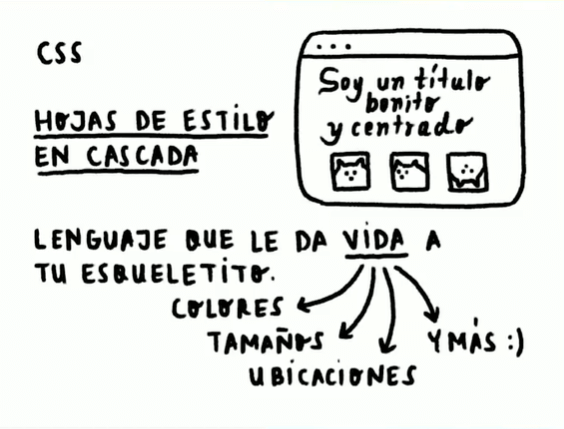 CSS
HOJAS DE ESTILO
EN CASCADA
Soy un título
bonito
y centrado
LENGUAJE QUE LE DA VIDA A
TU ESQUELETITO.
COLORES
TAMAÑOS
UBICACIONES
Y MÁS :)